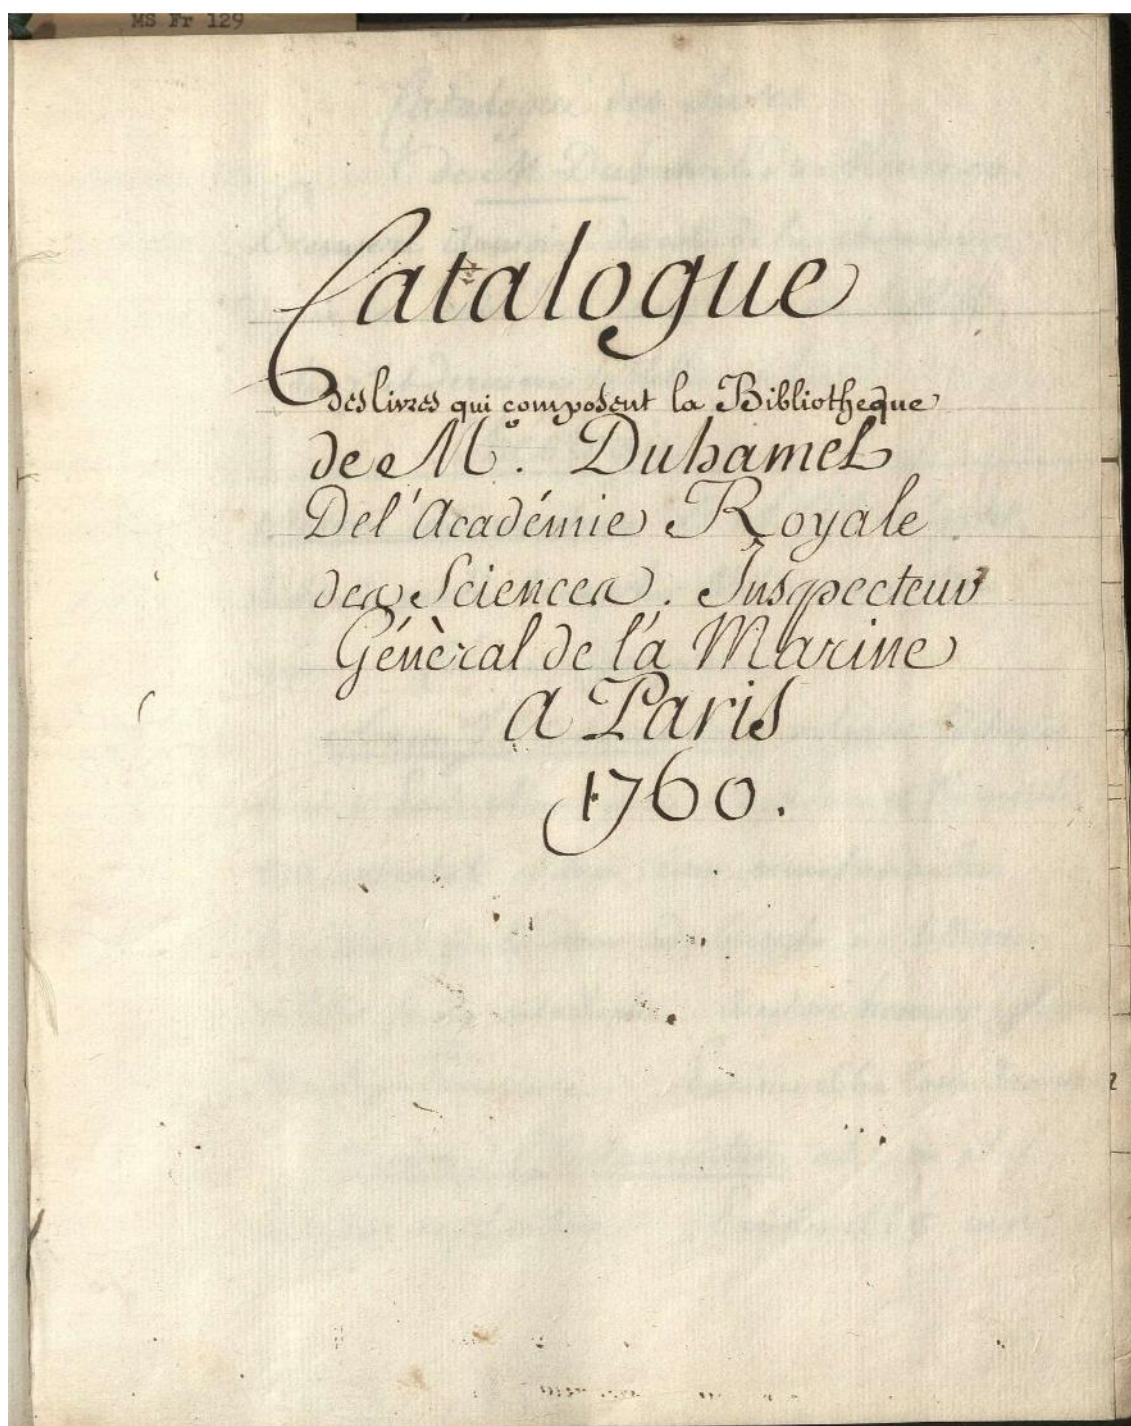 MS Fr 129
Catalogue
des livres qui composent la Bibliotheque
de M.r Duhamel
De l'Académie Royale
des Sciences. Inspecteur
Général de la Marine
a Paris
1760.